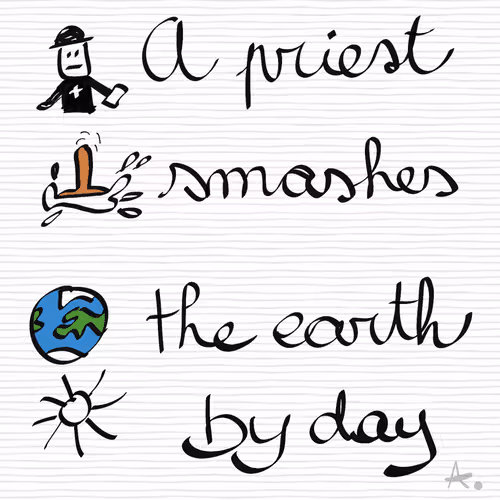 A priest
smashes
the earth
by day
A.